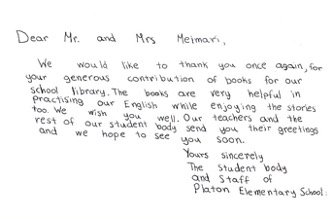 Dear Mr. and Mrs Meimari,
We would like to thank you once again, for
your generous contribution of books for our
school library. The books are very helpful in
practising our English while enjoying the stories
too. We wish you well. Our teachers and the
rest of our student body send you their greetings
and we hope to see you soon.
Yours sincerely
The student body
and Staff of
Platon Elementary School.